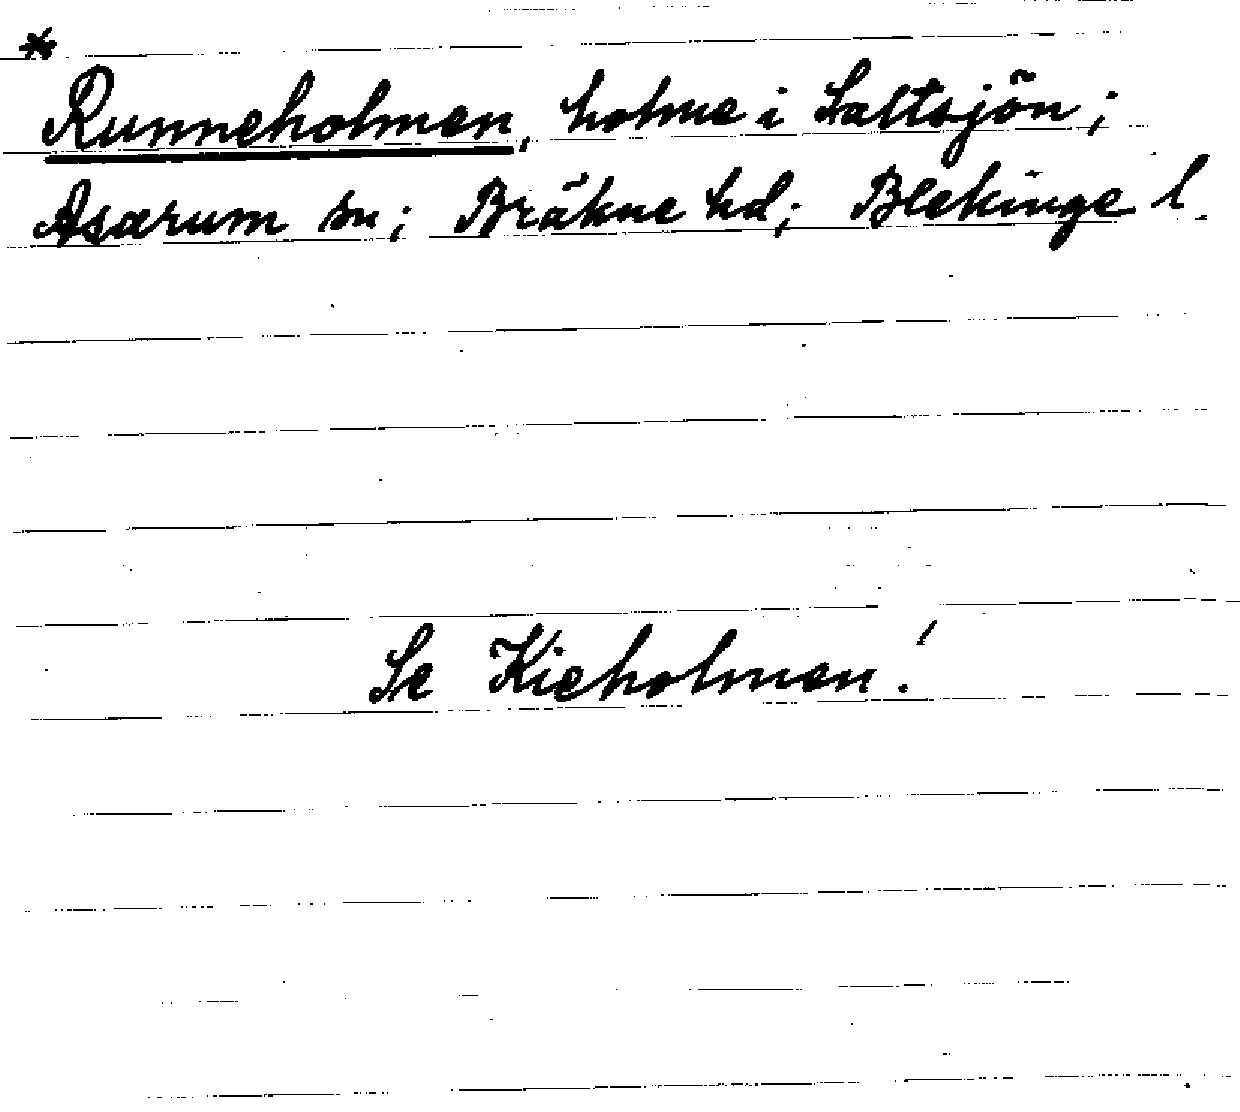 *
Runneholmen, holme i Saltsjön;
Asarum sn; Bräkne hd; Blekinge l.
Se Kieholmen!